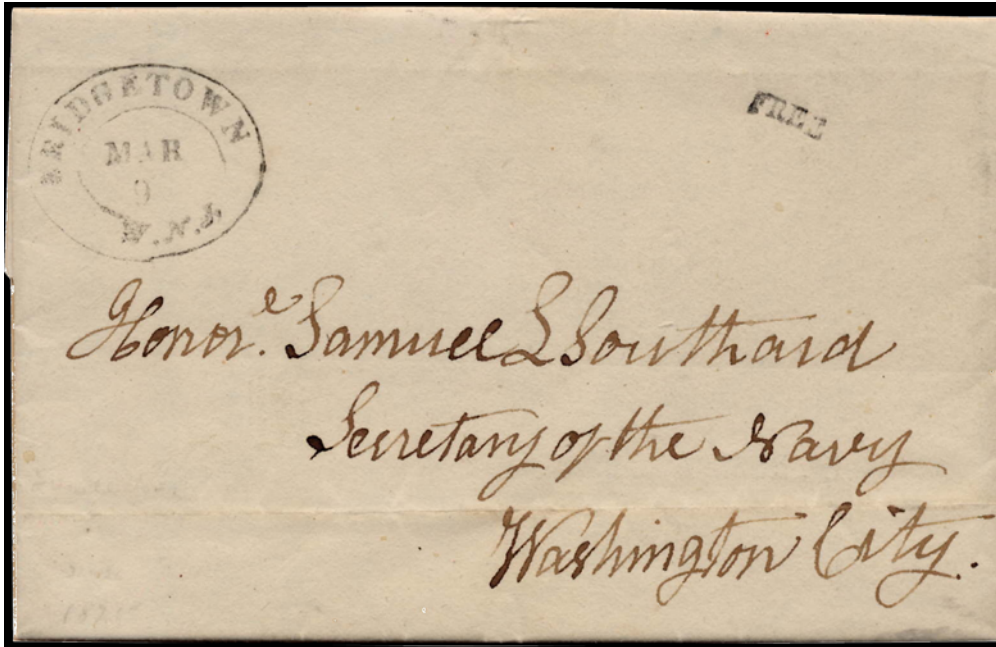 BRIDGETOWN
MAR
9
W.N.J.
FREE
Honor.e Samuel L Southard
Secretary of the Navy
Washington City.